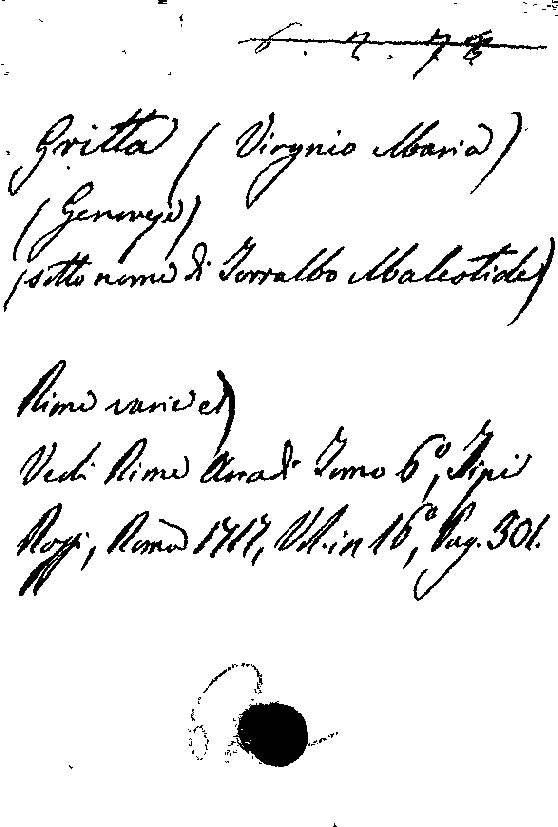 6. 2. 7
Gritta (Virginio Maria)
(Genovese)
(sotto nome di Torralbo Maleotide)
Rime varie
Vedi Rime Arcadi Tomo 6º, Tipi
Rossi, Roma 1717, Vol. in 16º, Pag. 301.